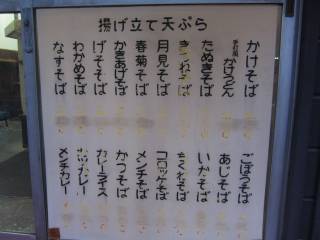 揚げ立て天ぷら
かけそば
かけうどん
たぬきそば
きつねそば
月見そば
春菊そば
かきあげそば
げそそば
わかめそば
なすそば
ごぼうそば
あじそば
いかそば
ちくわそば
コロッケそば
メンチそば
かつそば
カレーライス
カレー
メンチカレー